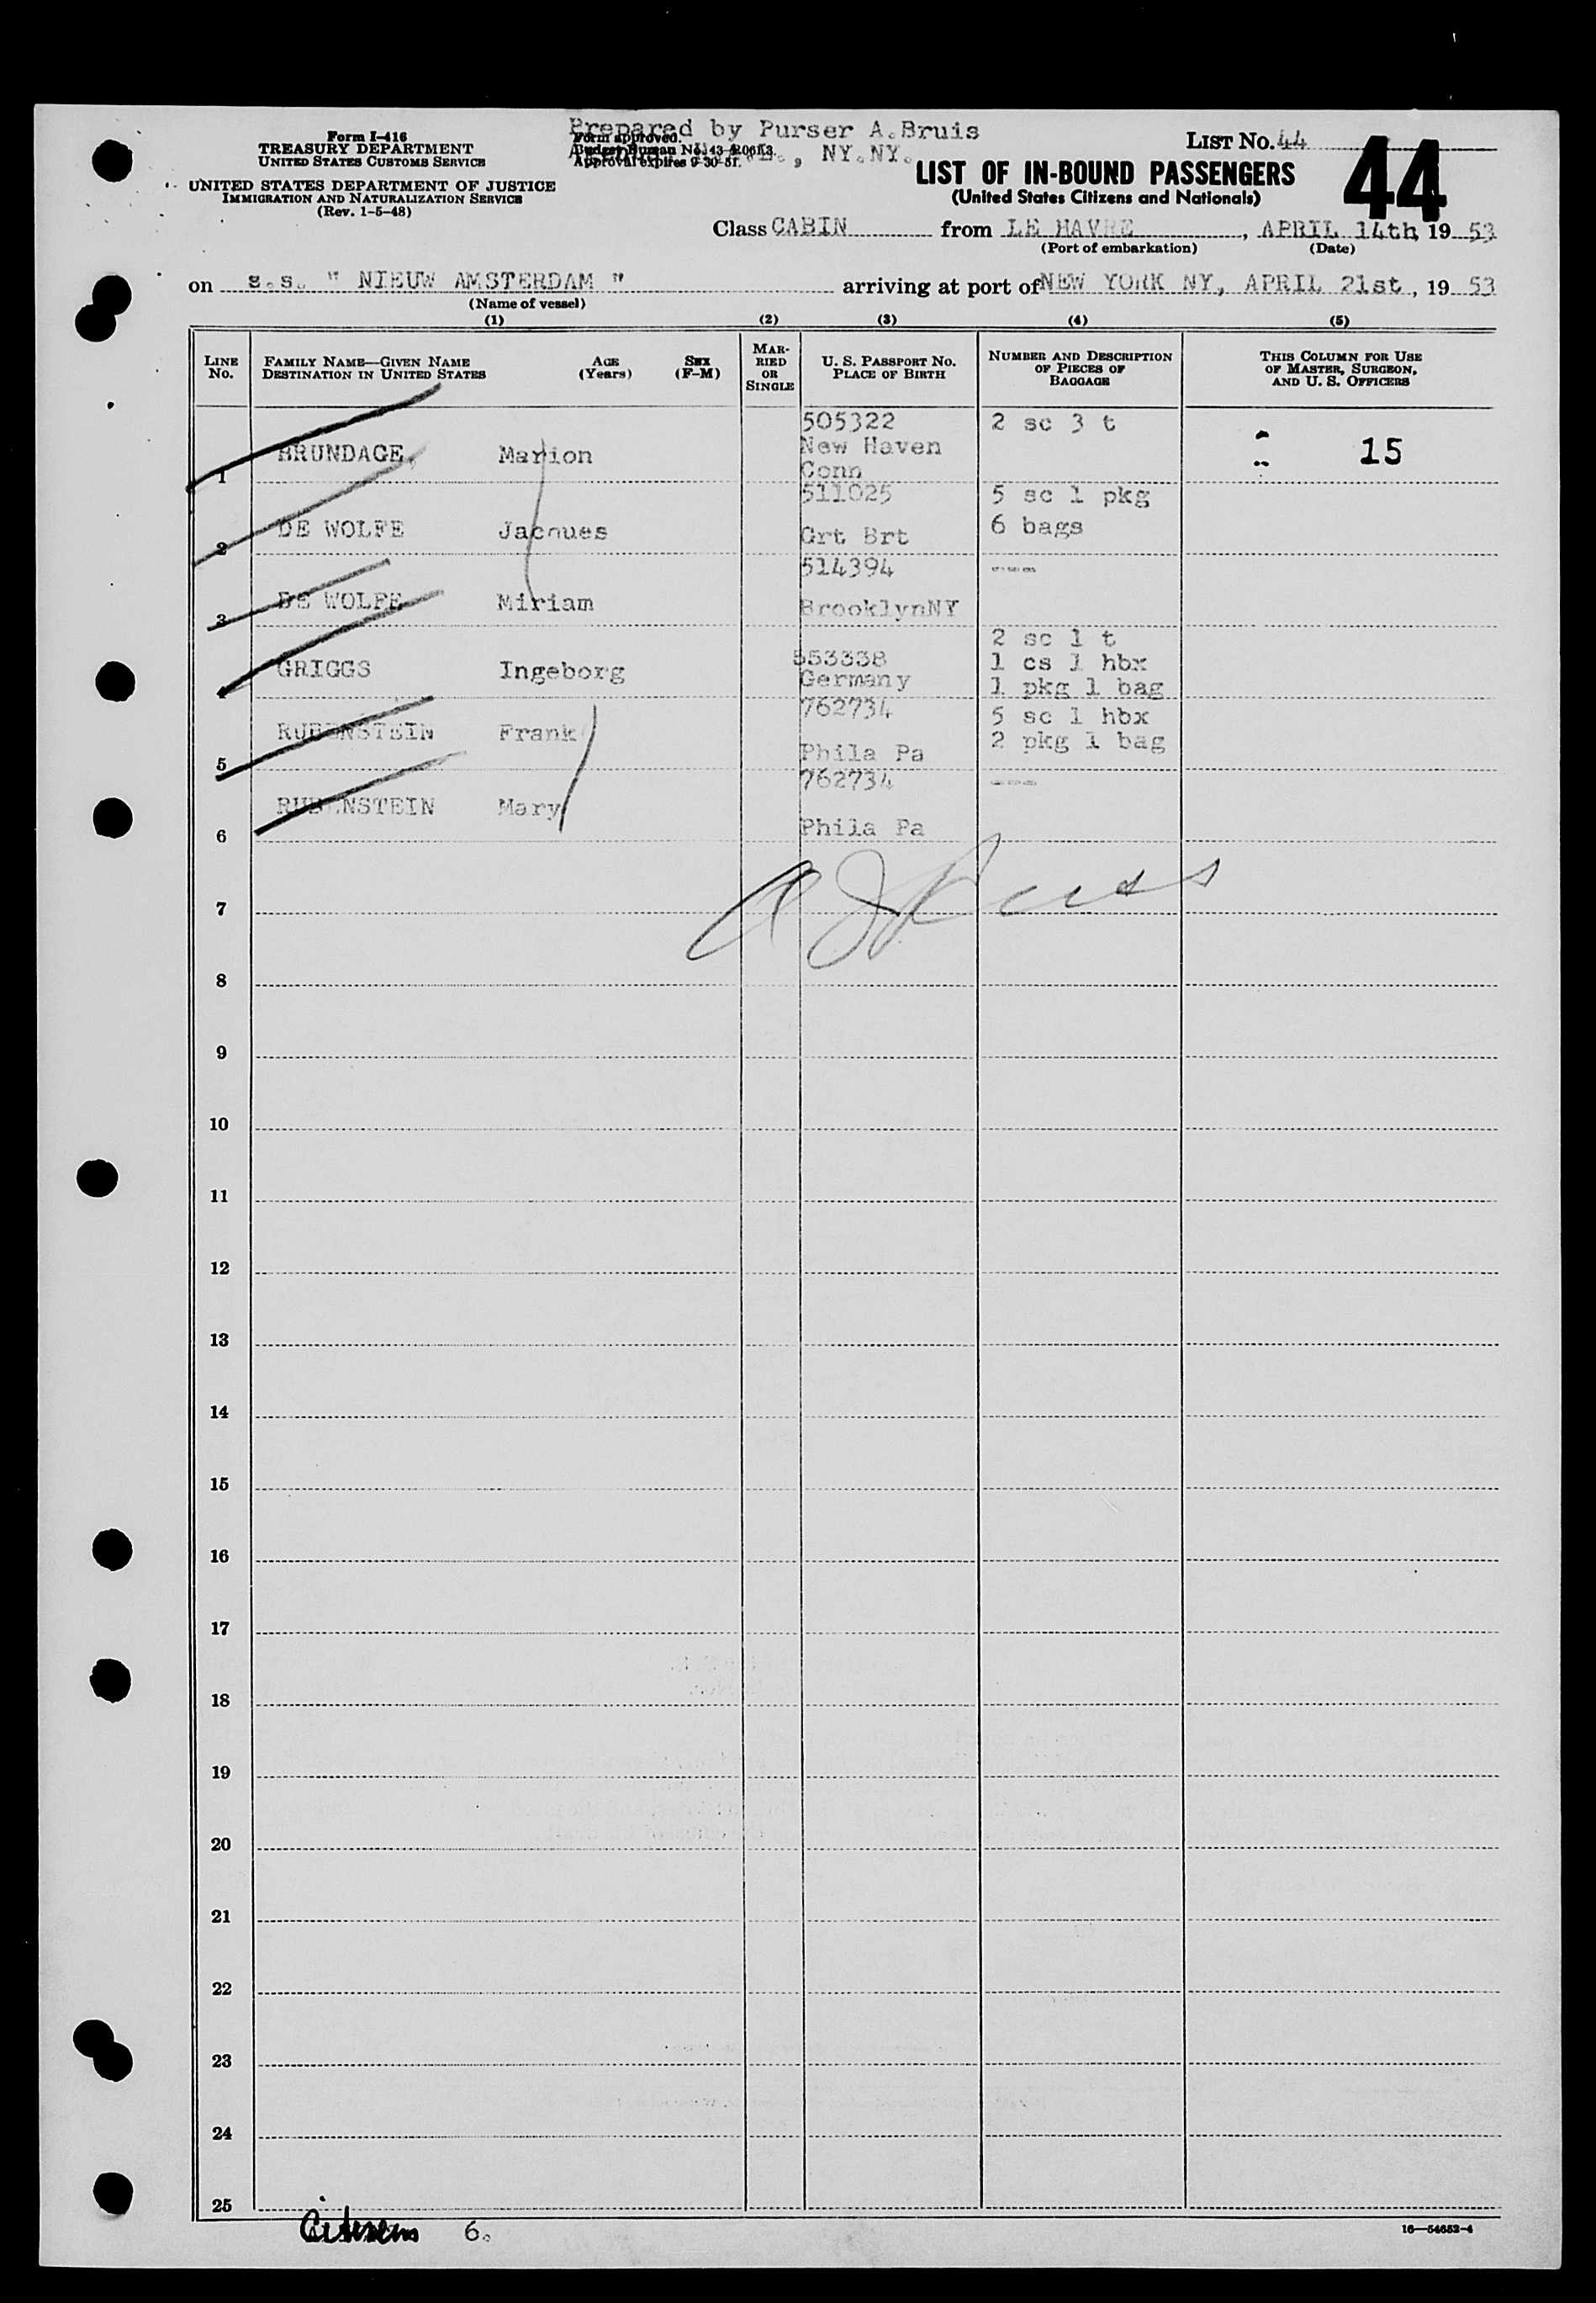 Form I-416
TREASURY DEPARTMENT
UNITED STATES CUSTOMS SERVICE
UNITED STATES DEPARTMENT OF JUSTICE
IMMIGRATION AND NATURALIZATION SERVICE
(Rev. 1-5-48)
Prepared by Purser A.Bruis
Form approved.
Budget Bureau No. 43-R06
Approval expires 9-30-51.
NY.NY.
LIST NO. 44
44
LIST OF IN-BOUND PASSENGERS
(United States Citizens and Nationals)
Class CABIN from LE HAVRE, APRIL 14th, 19 53
(Port of embarkation) (Date)
on s.s. " NIEUW AMSTERDAM " arriving at port of NEW YORK NY, APRIL 21st, 19 53
(Name of vessel)
(1) (2) (3) (4) (5)
LINE NO. FAMILY NAME—GIVEN NAME DESTINATION IN UNITED STATES AGE (Years) SEX (F-M) MARRIED OR SINGLE U. S. PASSPORT NO. PLACE OF BIRTH NUMBER AND DESCRIPTION OF PIECES OF BAGGAGE THIS COLUMN FOR USE OF MASTER, SURGEON, AND U. S. OFFICERS
505322 2 sc 3 t
1 BRUNDAGE, Marion New Haven 15
Conn
511025 5 sc 1 pkg
2 DE WOLFE Jacques Grt Brt 6 bags
514394 ----
3 DE WOLFE Miriam BrooklynNY
2 sc 1 t
553338 1 cs 1 hbx
4 GRIGGS Ingeborg Germany 1 pkg 1 bag
762734 5 sc 1 hbx
5 RUBENSTEIN Frank Phila Pa 2 pkg 1 bag
762734 ----
6 RUBENSTEIN Mary Phila Pa
7
8
9
10
11
12
13
14
15
16
17
18
19
20
21
22
23
24
25
Citizens 6.
16—54652-4